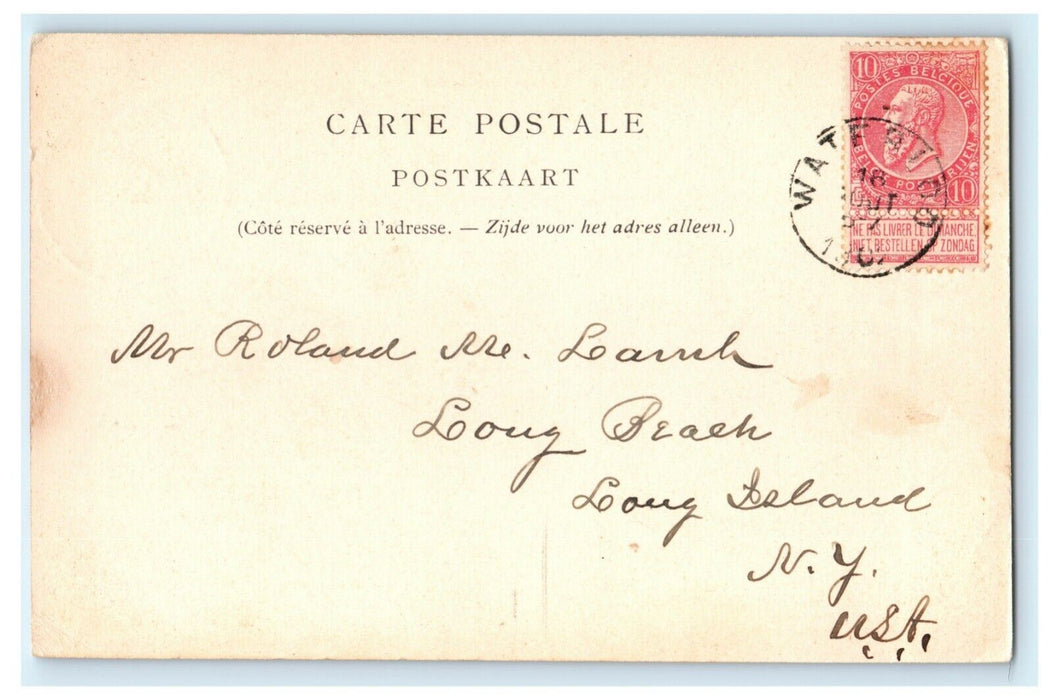 CARTE POSTALE
POSTKAART
(Côté réservé à l'adresse. — Zijde voor het adres alleen.)
10 POSTES BELGIQUE
BELGIE POSTERIJEN 10
NE PAS LIVRER LE DIMANCHE
NIET BESTELLEN OP ZONDAG
18
Mr Roland Mc. Lamb
Long Beach
Long Island
N.Y.
USA.